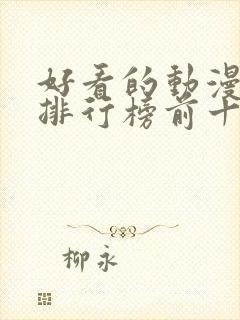 好看的動漫
排行榜前十
柳永